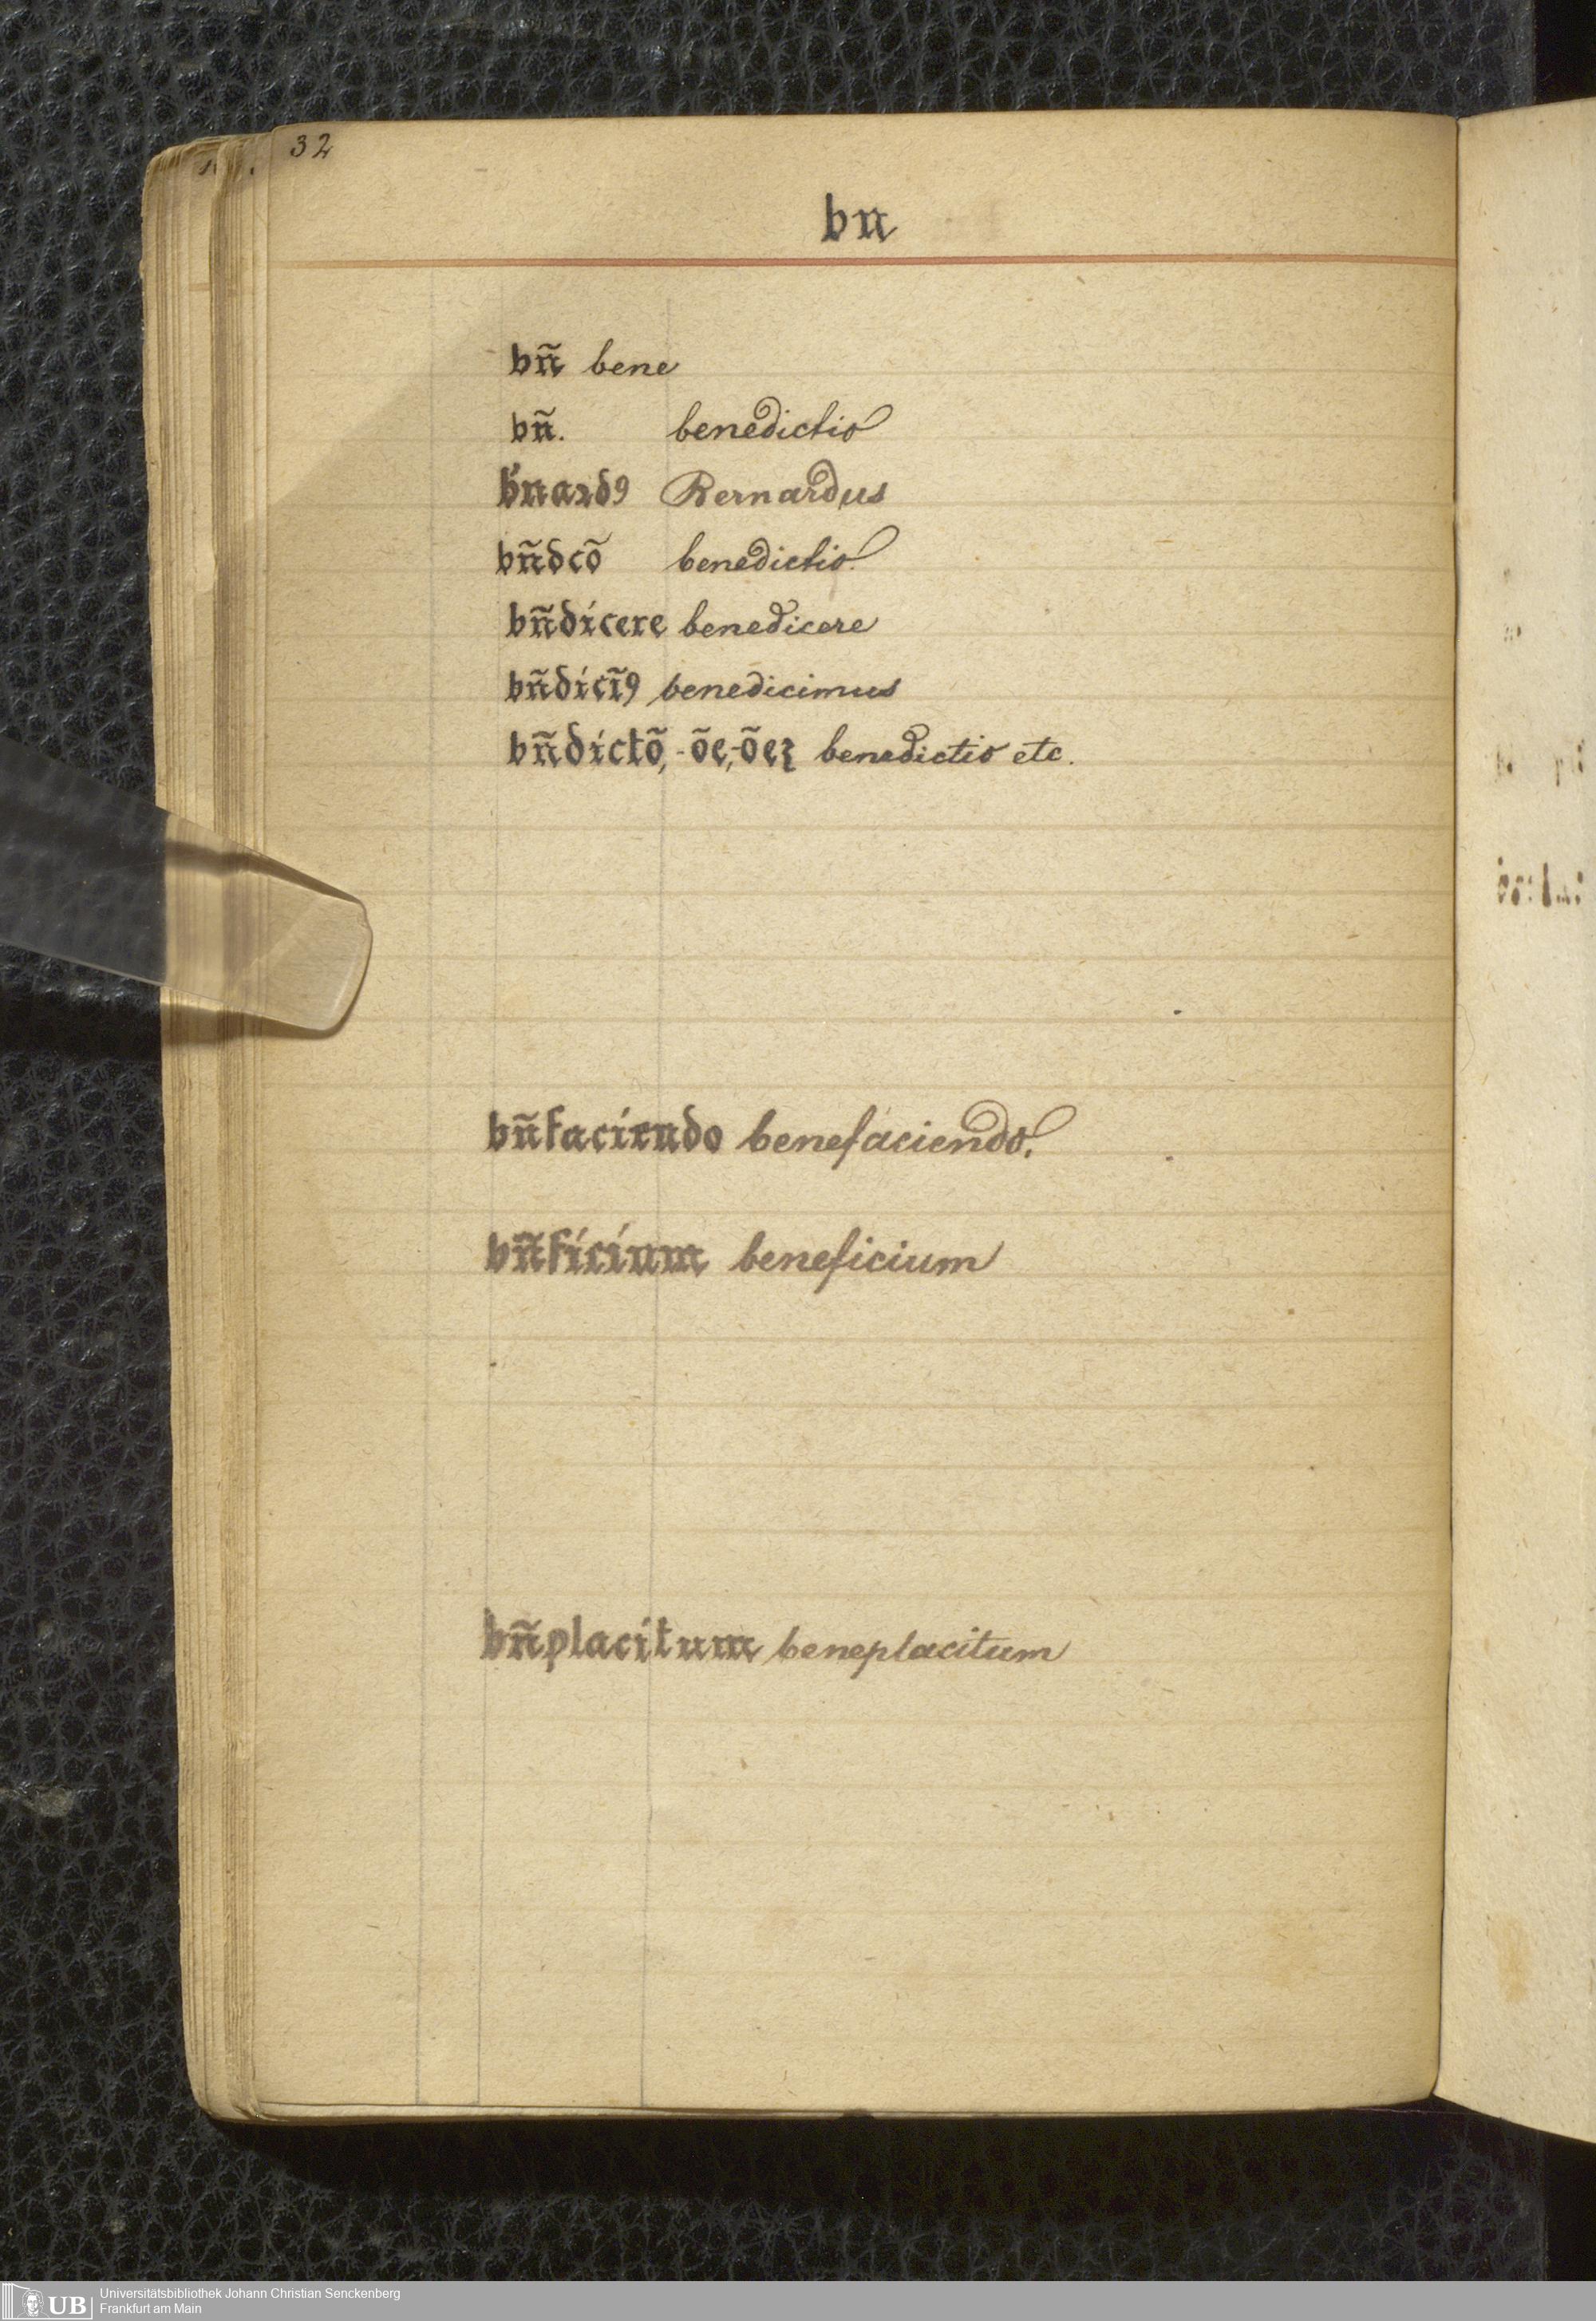 32
bn
bñ bene
bñ. benedictio
b̓naꝛdꝯ Bernardus
bñdcõ benedictio.
bñdicere benedicere
bñdicĩꝯ benedicimus
bñdictõ, -õe, -õeꝫ benedictio etc.
bñfaciendo benefaciendo.
bñficium beneficium
bñplacitum beneplacitum
UB Universitätsbibliothek Johann Christian Senckenberg
Frankfurt am Main